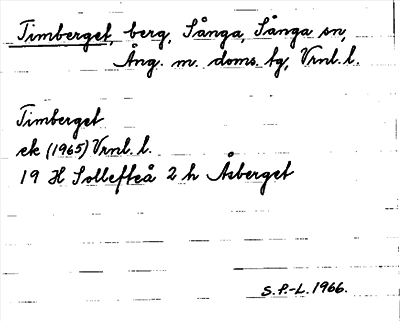 Timberget, berg, Sånga, Sånga sn,
Ång. m. doms. tg, Vrnl. l.
Timberget
ek (1965) Vrnl. l.
19 H Sollefteå 2 h Åsberget
S.P.-L. 1966.